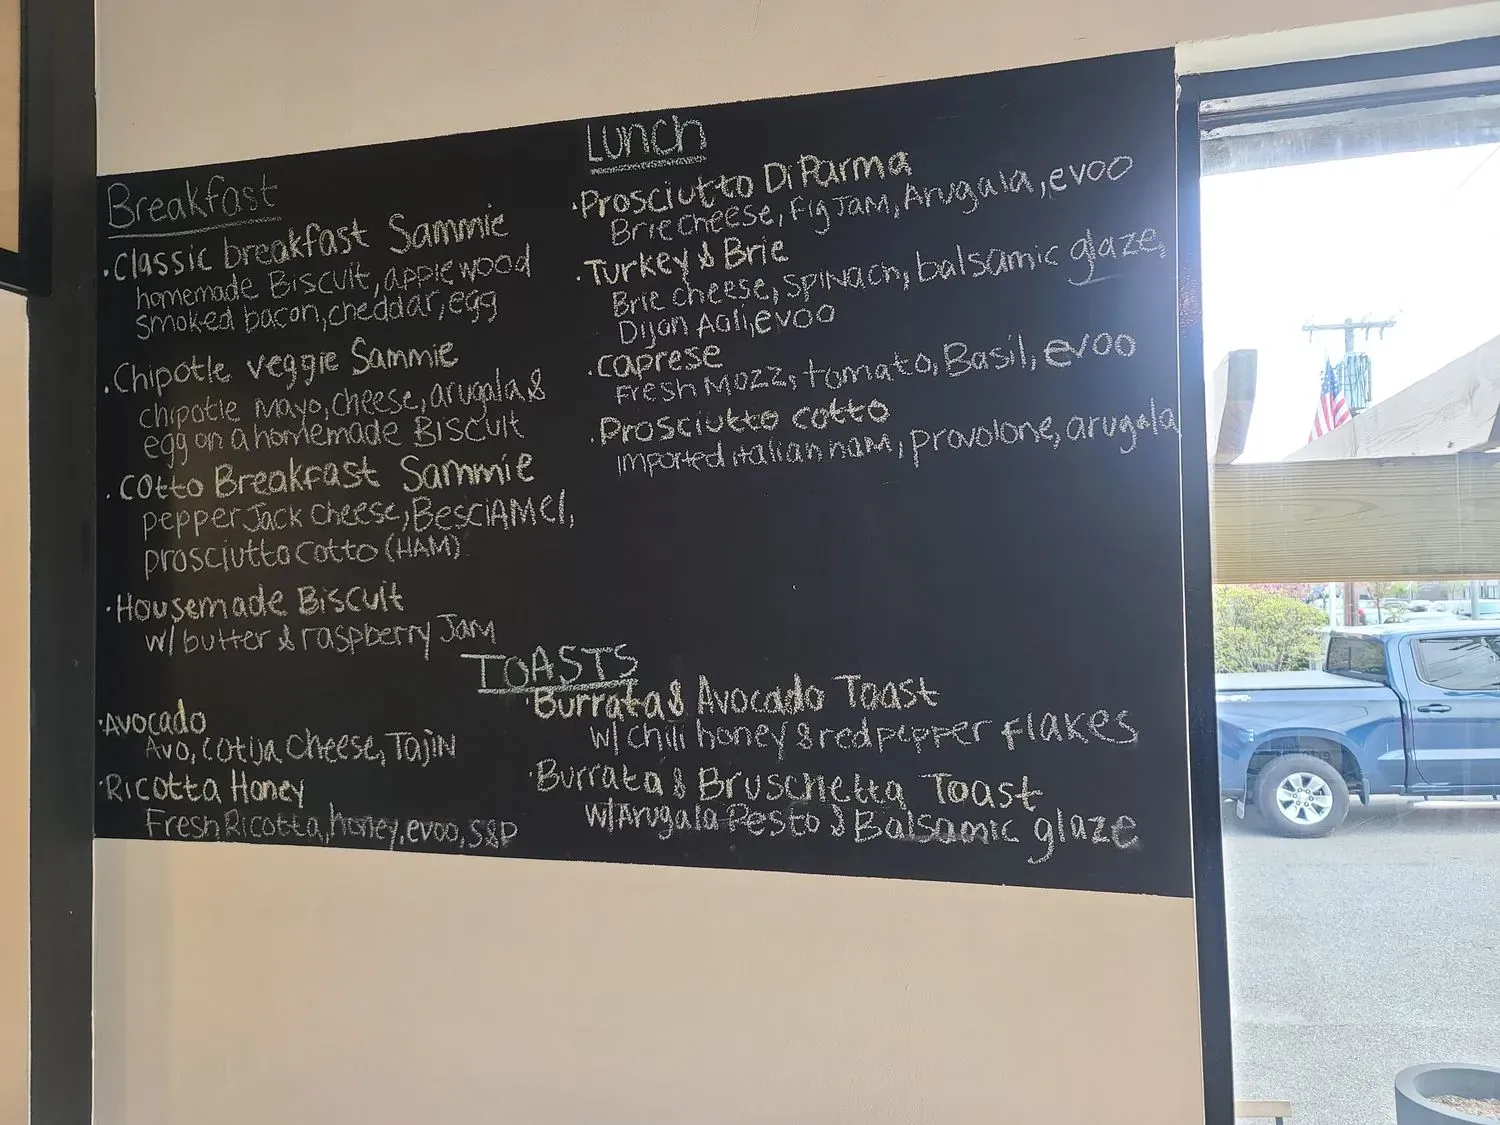 Breakfast
·Classic breakfast Sammie
homemade Biscuit, applewood
smoked bacon, cheddar, egg
·Chipotle veggie Sammie
chipotle Mayo, cheese, arugala &
egg on a homemade Biscuit
·Cotto Breakfast Sammie
pepper Jack cheese, BesciAMel,
prosciutto cotto (HAM)
·Housemade Biscuit
w/ butter & raspberry Jam
Lunch
·Prosciutto Di Parma
Brie cheese, Fig JAM, Arugala, evoo
·Turkey & Brie
Brie cheese, spinach, balsamic glaze,
Dijon Aoli, evoo
·caprese
Fresh Mozz, tomato, Basil, evoo
·Prosciutto cotto
Imported italian ham, provolone, arugala
TOASTS
·Avocado
Avo, cotija Cheese, Tajin
·Ricotta Honey
Fresh Ricotta, honey, evoo, S&P
·Burrata & Avocado Toast
w/ chili honey & red pepper flakes
·Burrata & Bruschetta Toast
w/ Arugala Pesto & Balsamic glaze